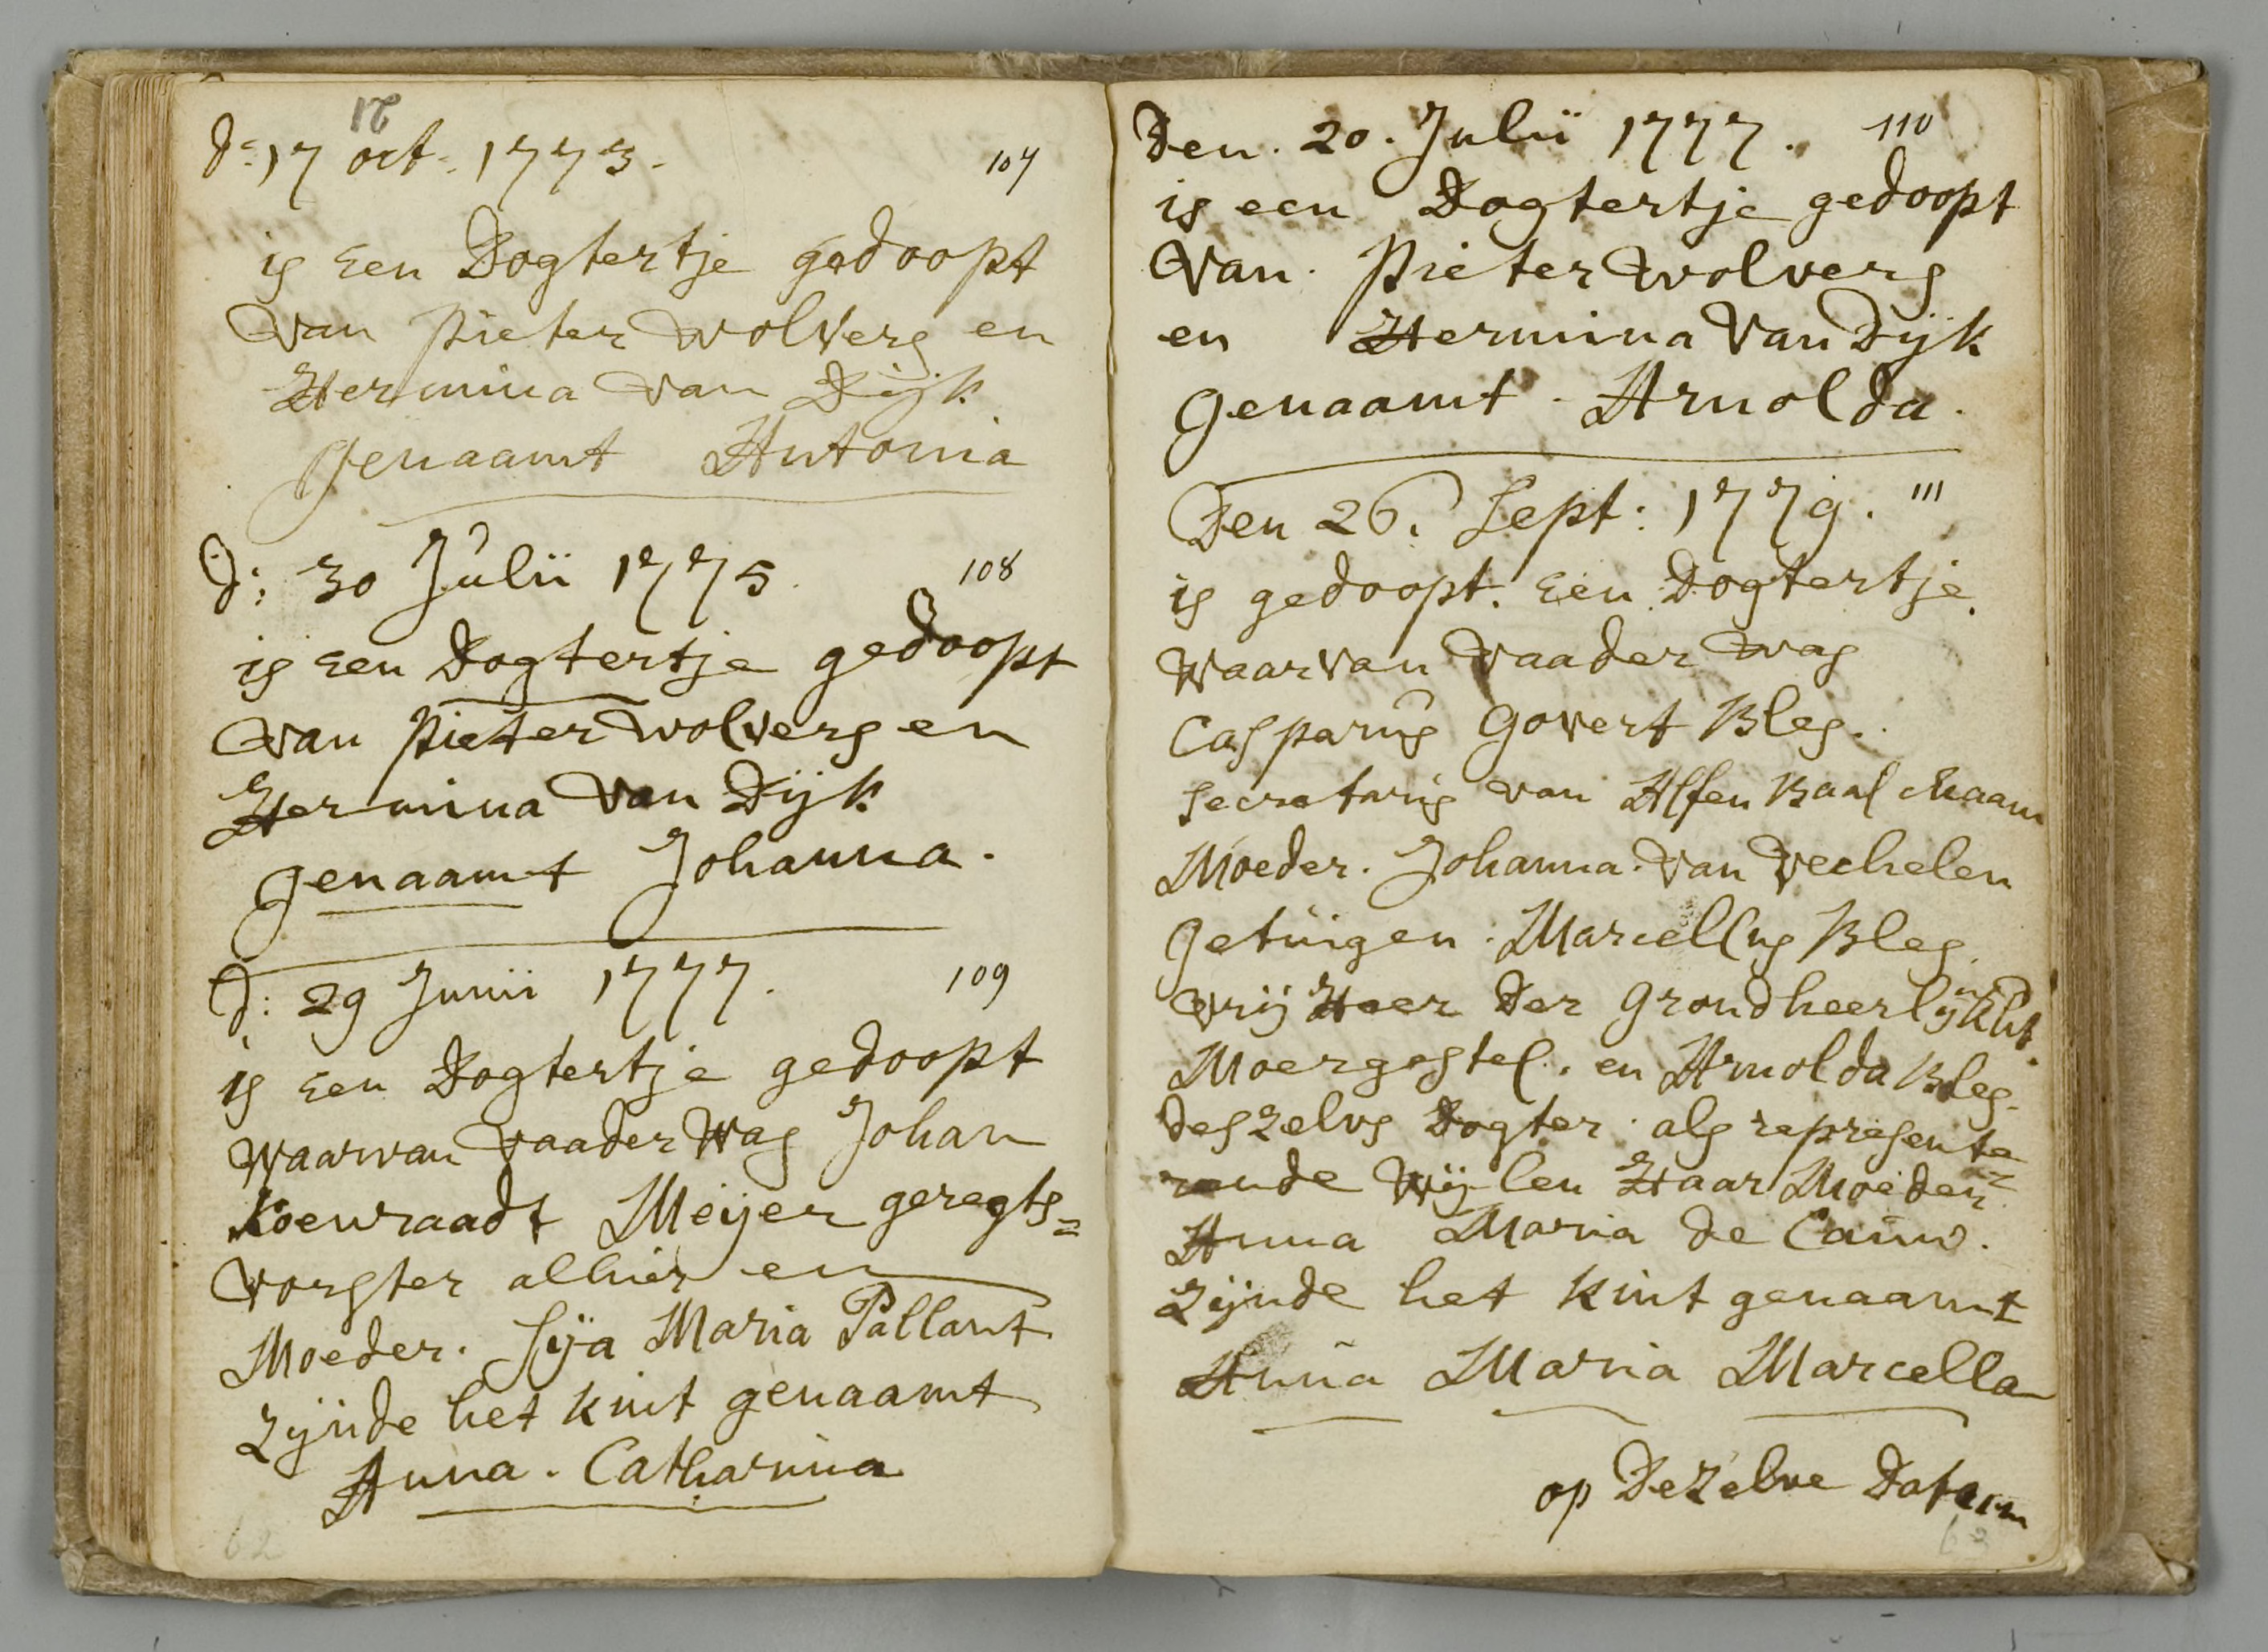 21
d: 17 oct. 1773. 107
is Een Dogtertje gedoopt
van Pieter Wolvers en
Hermina van Dijk
genaamt Antonia
d: 30 Julii 1775. 108
is Een Dogtertje gedoopt
van Pieter Wolvers en
Hermina van Dijk
genaamt Johanna.
d: 29 Junii 1777. 109
is Een Dogtertje gedoopt
waarvan vaader was Johan
Koenraadt Meijer geregts=
vorster alhier en
Moeder. Sija Maria Pallant
zijnde het kint genaamt
Anna. Catharina
62
Den. 20. Julii 1777. 110
is een Dogtertje gedoopt
van. Pieter Wolvers
en Hermina van Dijk
genaamt. Arnolda.
Den 26. Sept: 1779. 111
is gedoopt. Een Dogtertje.
waarvan vaader was
Casparus Govert Bles.
Secretaris van Alfen Baal Chaam
Moeder. Johanna. van Vechelen
getuigen. Marcellus Bles.
vrij Heer Der Grondheerlijkht.
Moergestel. en Arnolda Bles.
deszelvs Dogter. als represente=
rende Wijlen Haar Moeder
Anna Maria de Cauw.
zijnde het kint genaamt
Anna Maria Marcella
op Dezelve Datum
63